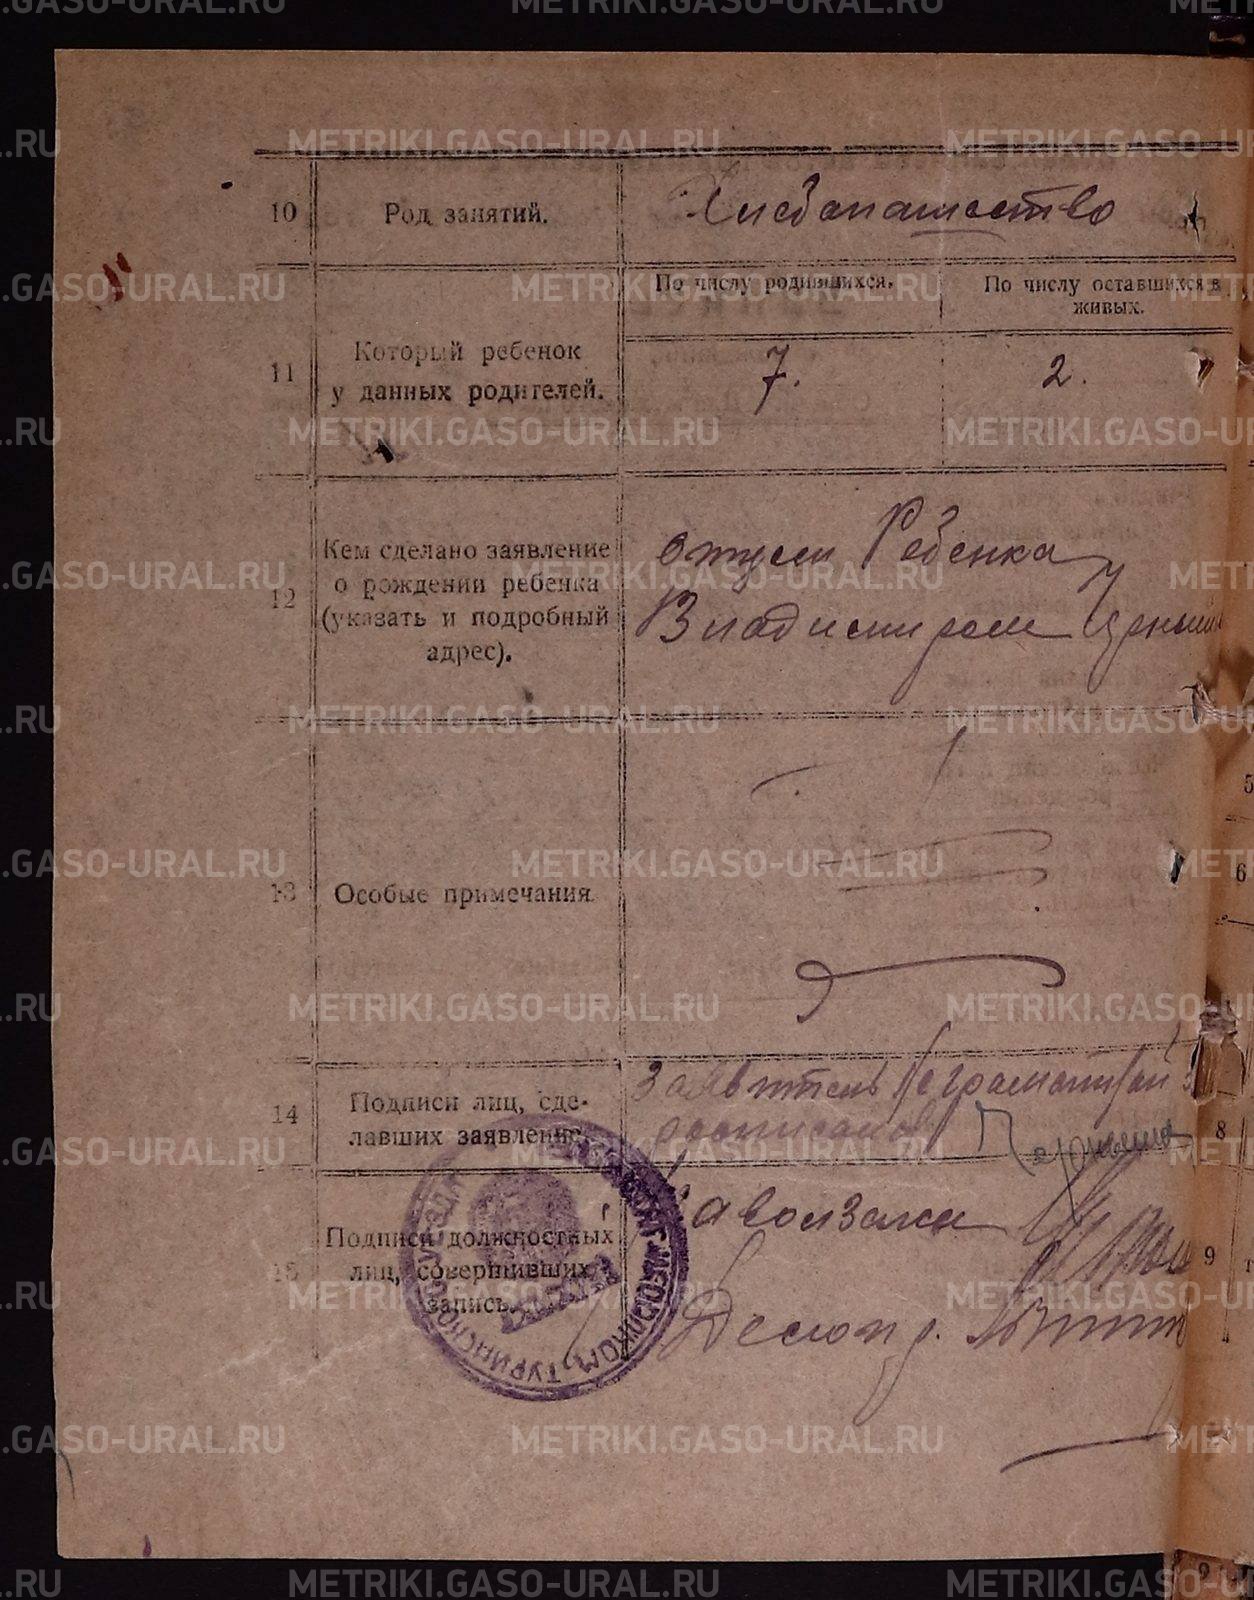 10 Род занятий. Хлебопашество
По числу родившихся. По числу оставшихся в живых.
11 Который ребенок
у данных родителей. 7. 2.
12 Кем сделано заявление
о рождении ребенка
(указать и подробный
адрес).
отцем Ребенка
Владимиром
13 Особые примечания.
14 Подписи лиц, сде-
лавших заявление.
Заявитель неграмотный за
15 Подписи должностных
лиц, совершивших
запись.
Делопр.
METRIKI.GASO-URAL.RU
5
6
8
9